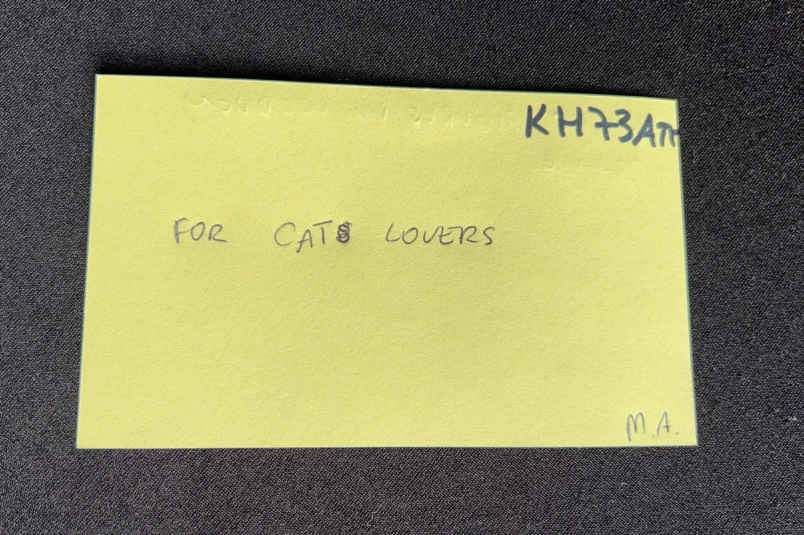 KH73ATM
FOR CATS LOVERS
M.A.